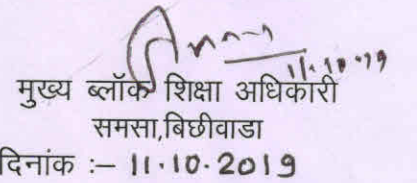 11.10.19
मुख्य ब्लॉक शिक्षा अधिकारी
समसा,बिछीवाडा
दिनांक :– 11.10.2019